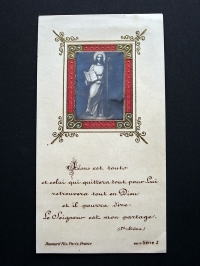 Jésus est tout:
et celui qui quittera tout pour Lui
retrouvera tout en Dieu
et il pourra dire:
Le Seigneur est mon partage.
Boumard Fils, Paris, France
Série 2